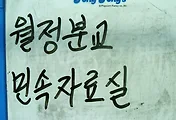 월정분교
민속자료실